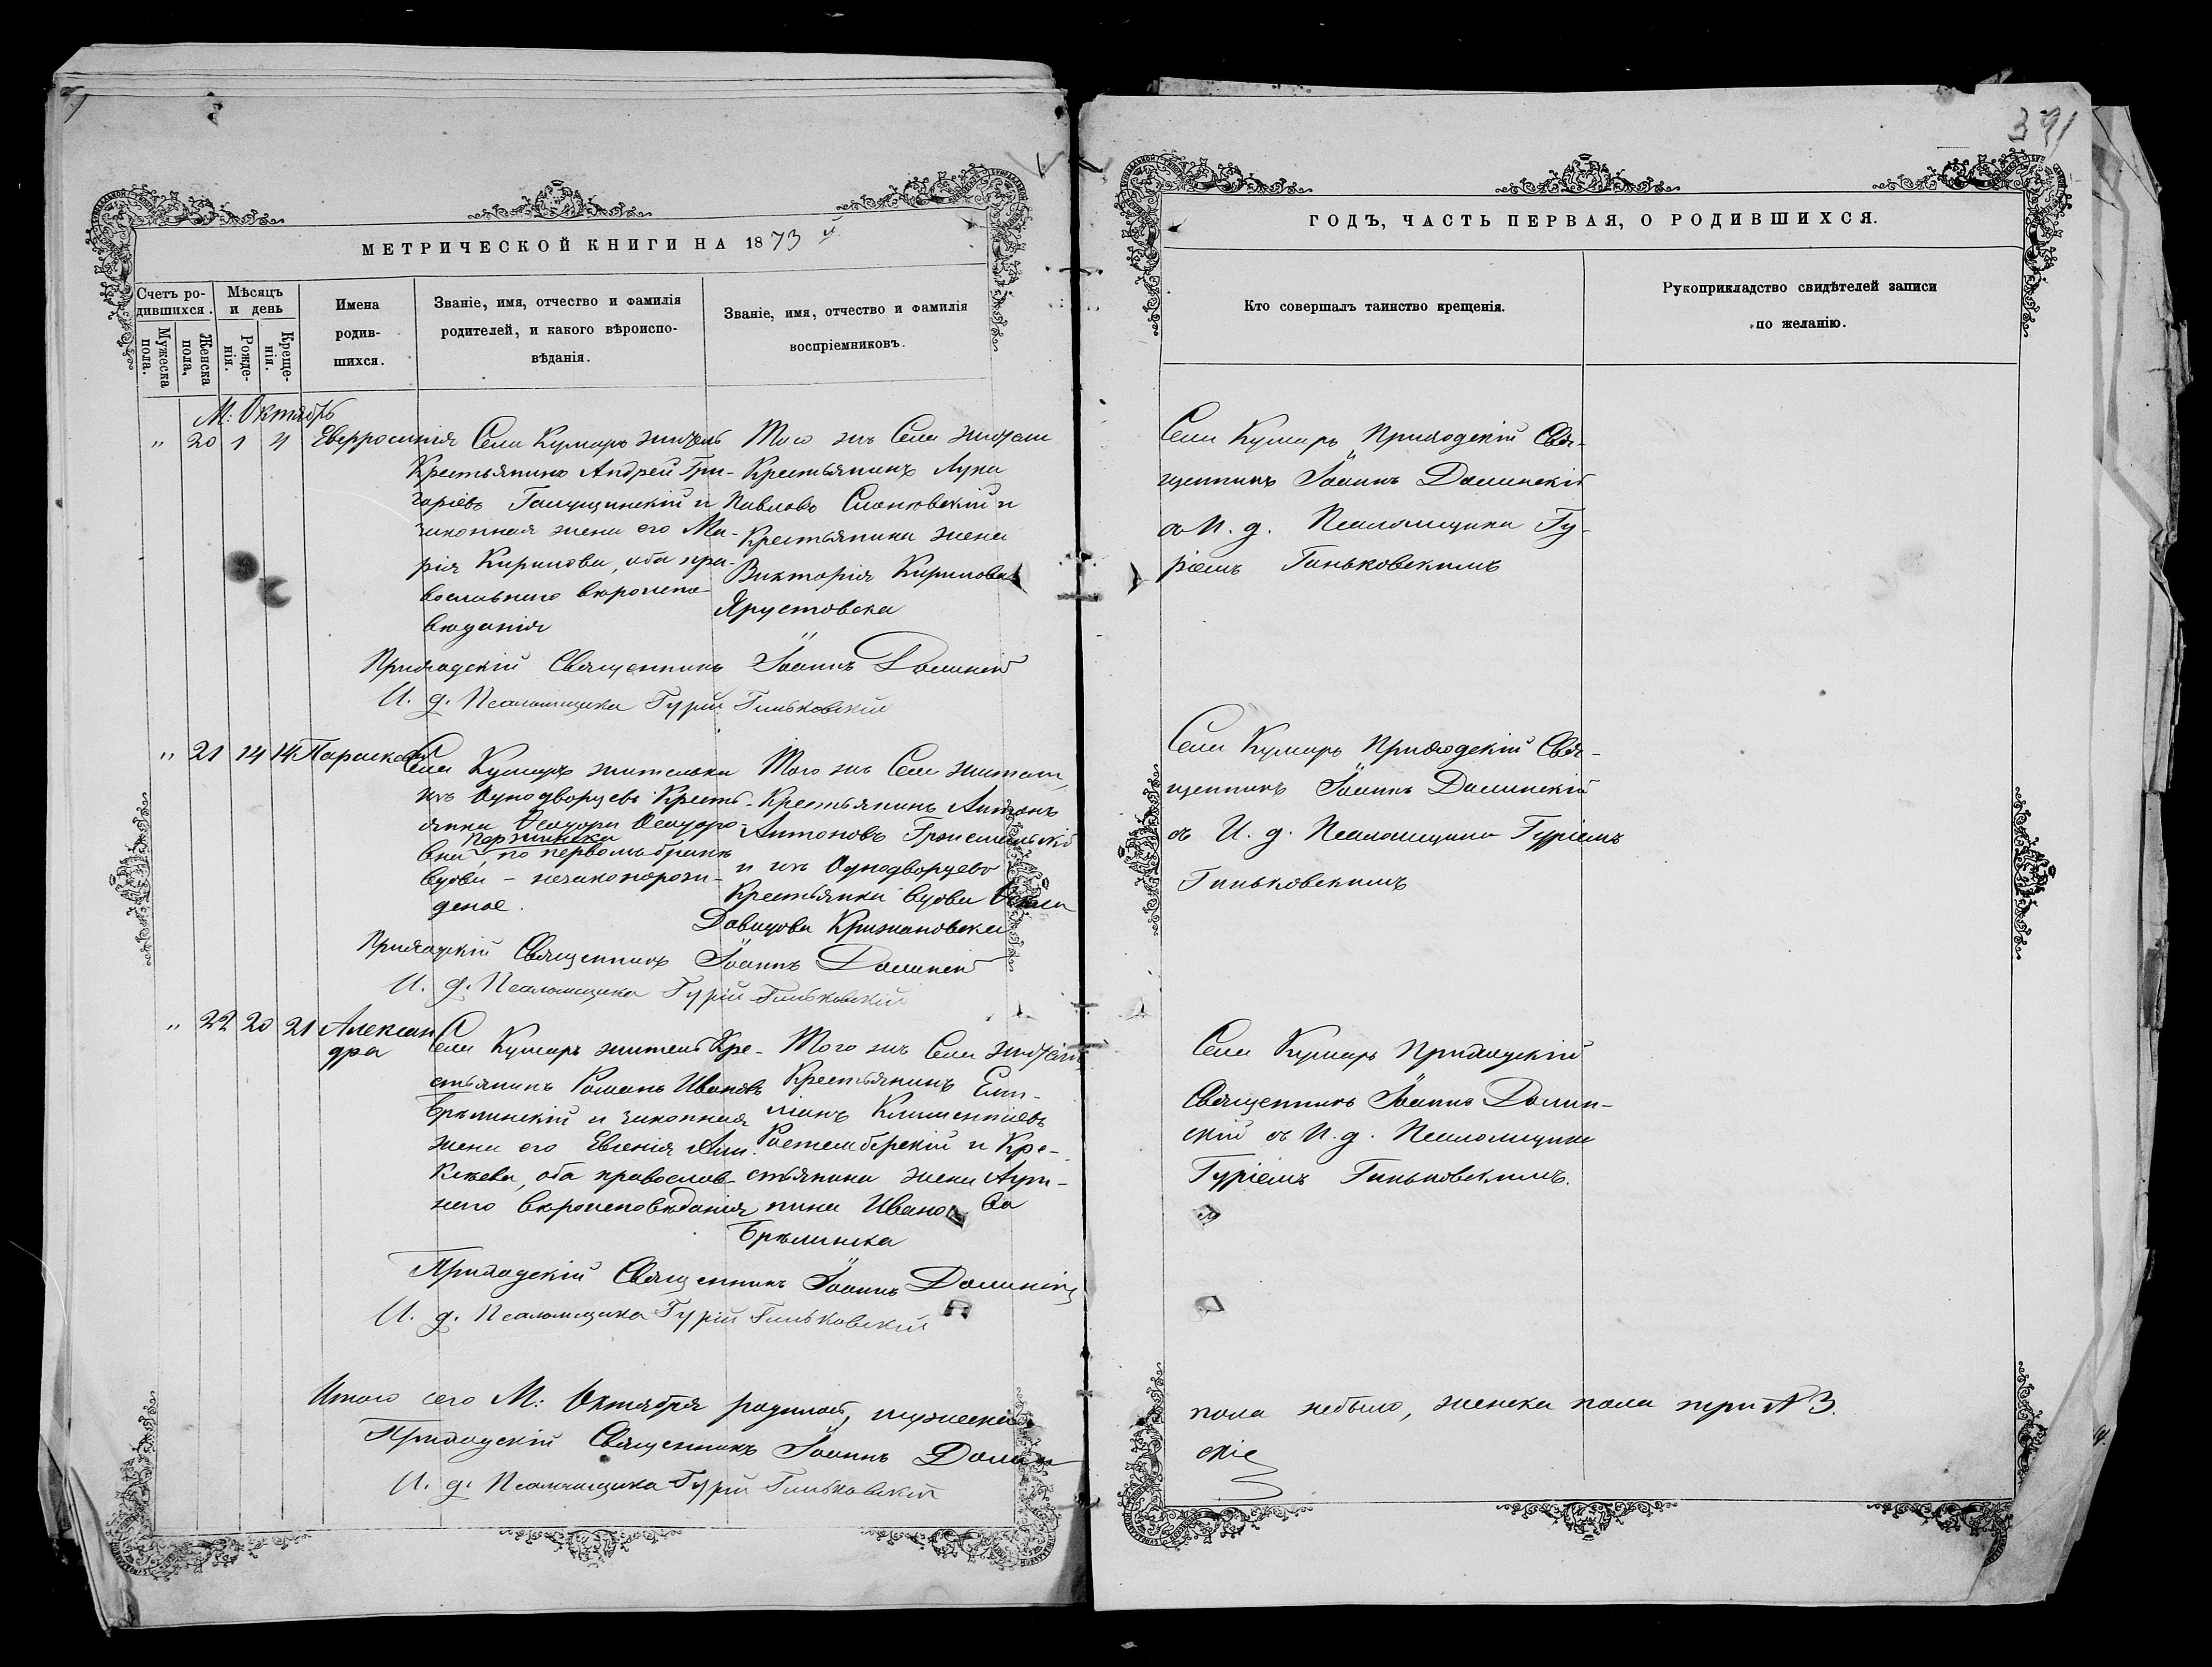 391
МЕТРИЧЕСКОЙ КНИГИ НА 1873 й
Счетъ ро-
дившихся.
Мужеска
пола.
Женска
пола.
Мѣсяцъ
и день
Рожде-
нія.
Креще-
нія.
Имена
родив-
шихся.
Званіе, имя, отчество и фамилія
родителей, и какого вѣроиспо-
вѣданія.
Званіе, имя, отчество и фамилія
воспріемниковъ.
М: Октябрь
" 20 1 4 Евфросинія
Села Кумаръ житель
Крестьянинъ Андрей Гри-
горіевъ и
законная жена его Ма-
рія Кирилова, оба пра-
вославнаго вѣроиспо-
вѣданія
Того жъ Села жители
Крестьянинъ Лука
Павловъ и
Крестьянина жена
Викторія Кирилова
Ярустовска
Приходскій Священникъ Іоаннъ Долинскій
И. д. Псаломщика Гурій Гиньковскій
" 21 14 14 Параскева
Села Кумаръ жителька
изъ Однодворцевъ Кресть-
янка Ѳеодора Ѳеодоро-
вна по первомъ бракѣ
вдова – незаконорож-
деное.
Того жъ Села жители,
Крестьянинъ Антонъ
Антоновъ
и изъ Однодворцевъ
Крестьянка вдова Ѳекла
Давидова Крижановска
Приходскій Священникъ Іоаннъ Долинскій
И. д. Псаломщика Гурій Гиньковскій
" 22 20 21 Алексан
дра
Села Кумаръ житель Кре-
стьянинъ Романъ Ивановъ
Брѣлинскій и законная
жена его Евгенія
оба православ-
наго вѣроисповѣданія
Того жъ Села жители
Крестьянинъ Еми-
ліанъ Климентіевъ
и Кре-
стьянина жена Ири-
пина Иванова
Брѣлинска
Приходскій Священникъ Іоаннъ Долинскій
И. д. Псаломщика Гурій Гиньковскій
Итого сего М: Октября родилось, мужеска
Приходскій Священникъ Іоаннъ Долин
И. д. Псаломщика Гурій Гиньковскій
ГОДЪ, ЧАСТЬ ПЕРВАЯ, О РОДИВШИХСЯ.
Кто совершалъ таинство крещенія.
Рукоприкладство свидѣтелей записи
по желанію.
Села Кумаръ Приходскій Свя-
щенникъ Іоаннъ Долинскій
съ И. д. Псаломщика Гу-
ріемъ Гиньковскимъ
Села Кумаръ Приходскій Свя-
щенникъ Іоаннъ Долинскій
съ И. д. Псаломщика Гуріемъ
Гиньковскимъ
Села Кумаръ Приходскій
Священникъ Іоаннъ Долин-
скій съ И. д. Псаломщика
Гуріемъ Гиньковскимъ.
пола небыло, женска пола три № 3.
скій